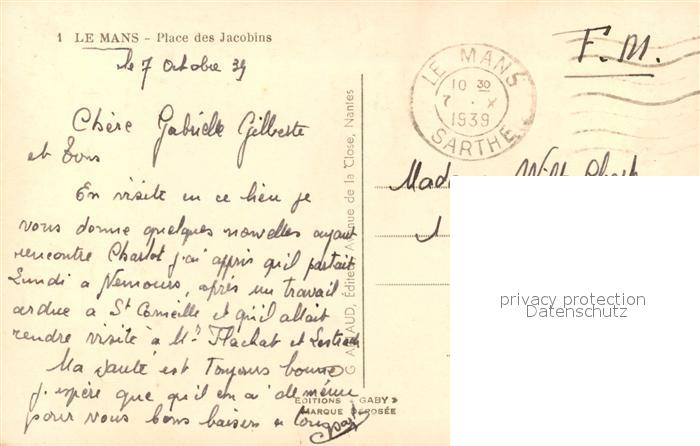 1 LE MANS – Place des Jacobins
le 7 Octobre 39
Chère Gabrielle Gilberte
et Tous
En visite en ce lieu je
vous donne quelques nouvelles ayant
rencontre Charlot j'ai appris qu'il partait
Lundi a Nemours, après un travail
ardue a St Corneille et qu'il allait
rendre visite a Mr Flachat et
Ma santé est Toujours bonne
j'espère que qu'il en a de même
pour vous bons baisers a tous
EDITIONS « GABY »
MARQUE DEPOSÉE
G. ARTAUD, Éditeur, Avenue de la Close, Nantes
LE MANS
10 30
7 · X
1939
SARTHE
F.M.
privacy protection
Datenschutz